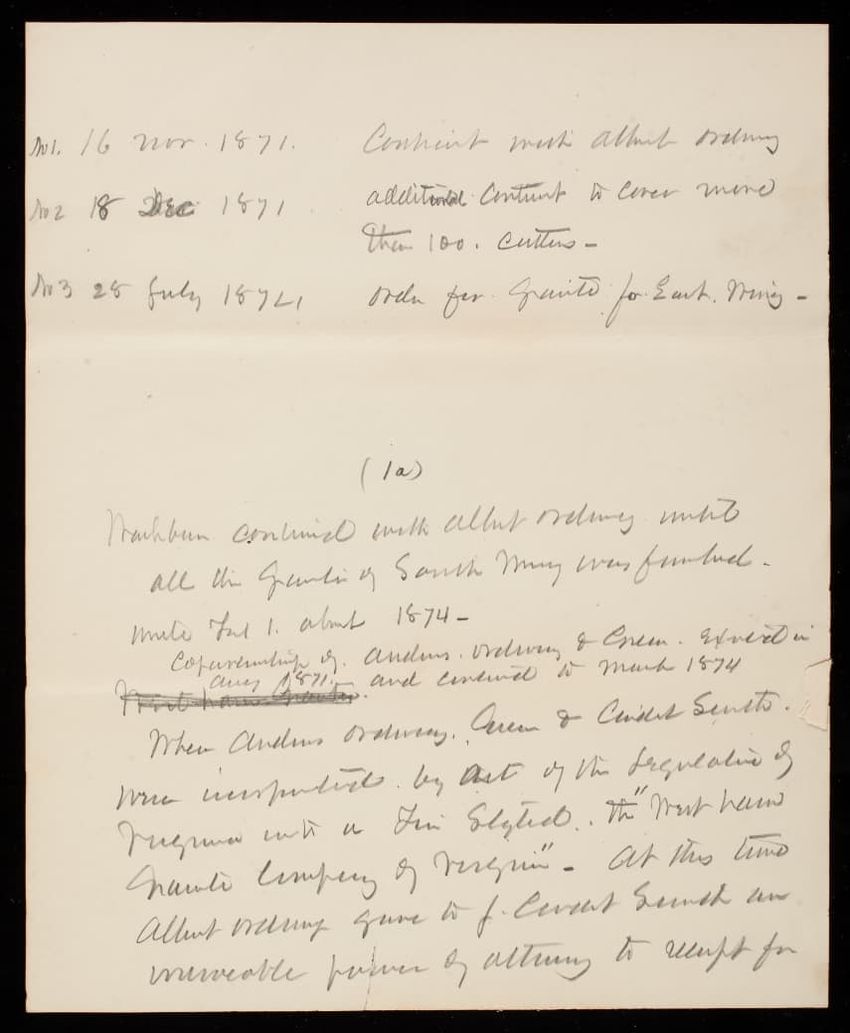 No 1. 16 Nov. 1871. Contract with Albert Ordway
No 2 18 Dec 1871 additional Contract to cover more
than 100. Cutters -
No 3 28 July 1872, order for Granite for East. Wing -
(1a)
continued with Albert Ordway until
all the Granite of South Wing was furnished.
until 1. about 1874 -
Copartnership of. Andrus. Ordway & Green. Existed in
Aug 1871. and continued to March 1874
West ham Granite
When Andrus Ordway. Green & Smith.
were incorporated. by Act of the Legislature of
Virginia into a Firm Styled. the "West ham
Granite Company of Virginia" - At this time
Albert Ordway gave to J. Smith an
irrevocable power of attorney to receipt for